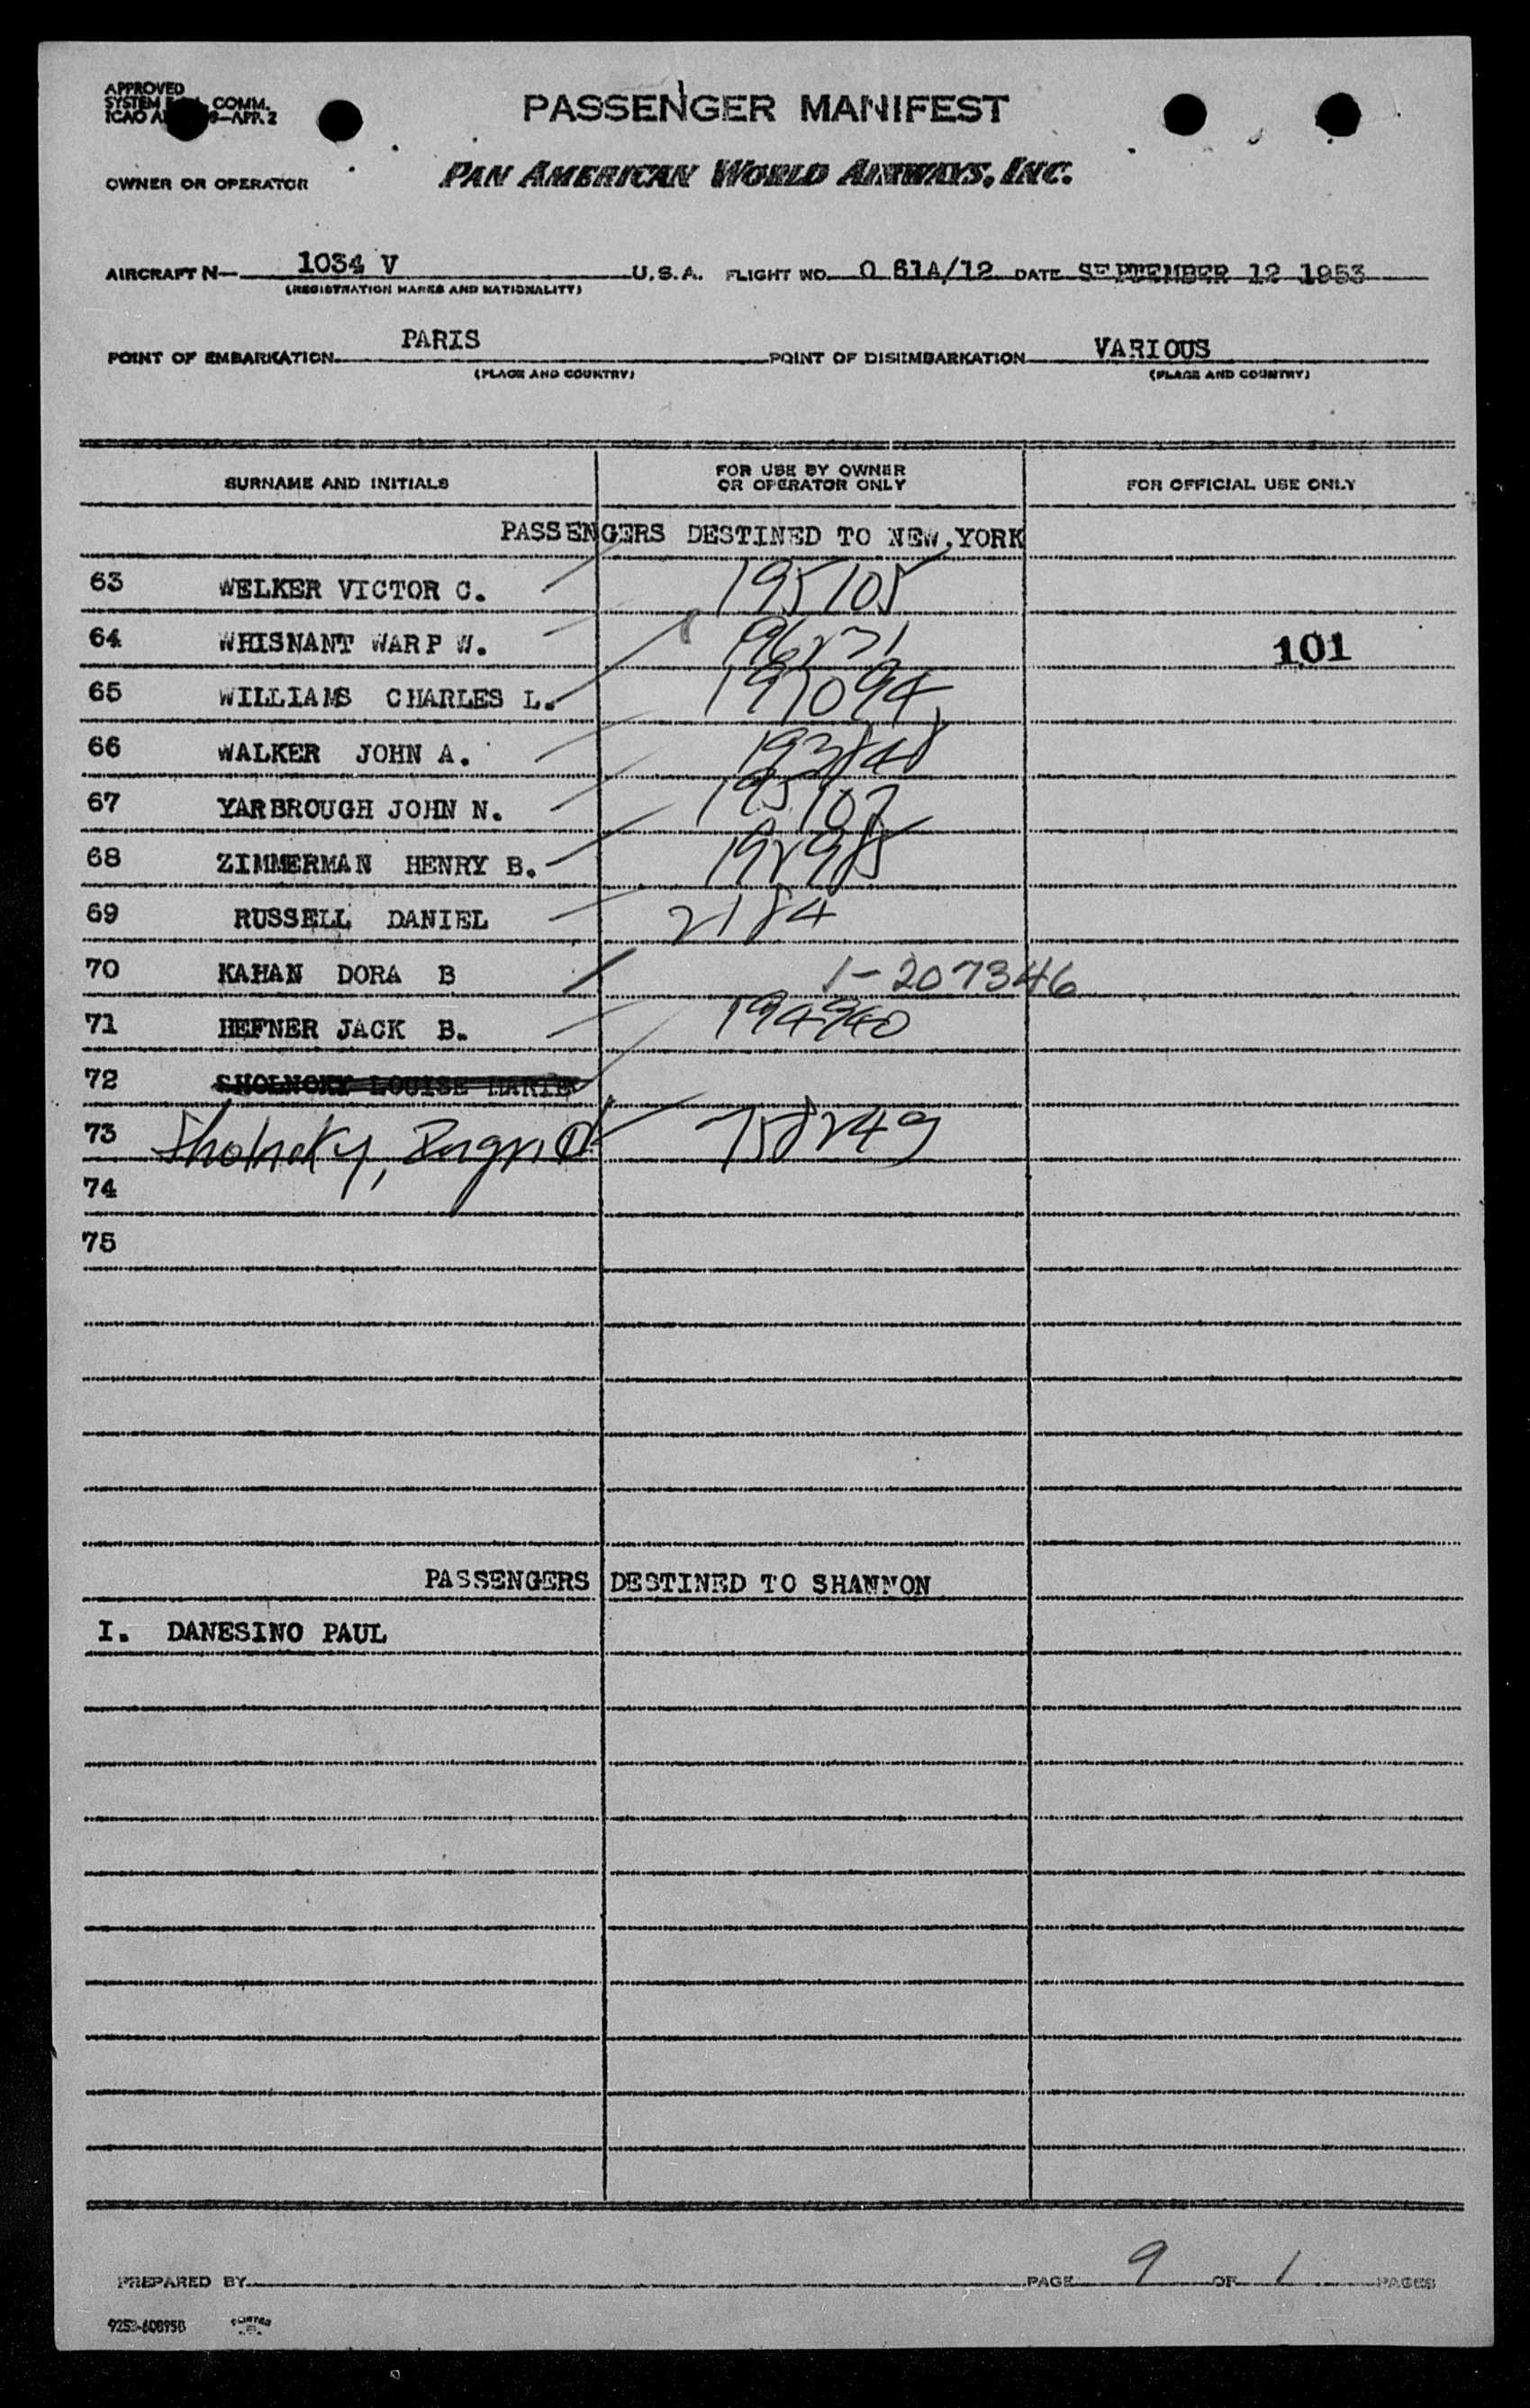 APPROVED
SYSTEM COMM.
ICAO APP. 2
PASSENGER MANIFEST
OWNER OR OPERATOR PAN AMERICAN WORLD AIRWAYS, INC.
AIRCRAFT N— 1034 V U.S.A. FLIGHT NO. 0 61A/12 DATE SEPTEMBER 12 1953
(REGISTRATION MARKS AND NATIONALITY)
POINT OF EMBARKATION PARIS POINT OF DISEMBARKATION VARIOUS
(PLACE AND COUNTRY) (PLACE AND COUNTRY)
SURNAME AND INITIALS FOR USE BY OWNER OR OPERATOR ONLY FOR OFFICIAL USE ONLY
PASSENGERS DESTINED TO NEW YORK
63 WELKER VICTOR C. 195105
64 WHISNANT WARP W. 101
65 WILLIAMS CHARLES L. 197094
66 WALKER JOHN A.
67 YARBROUGH JOHN N. 195107
68 ZIMMERMAN HENRY B.
69 RUSSELL DANIEL 2184
70 KAHAN DORA B 1-207346
71 HEFNER JACK B. 194940
72 SHOLNOKY LOUISE MARIE
73 758249
74
75
PASSENGERS DESTINED TO SHANNON
I. DANESINO PAUL
PREPARED BY PAGE 9 OF 1 PAGES